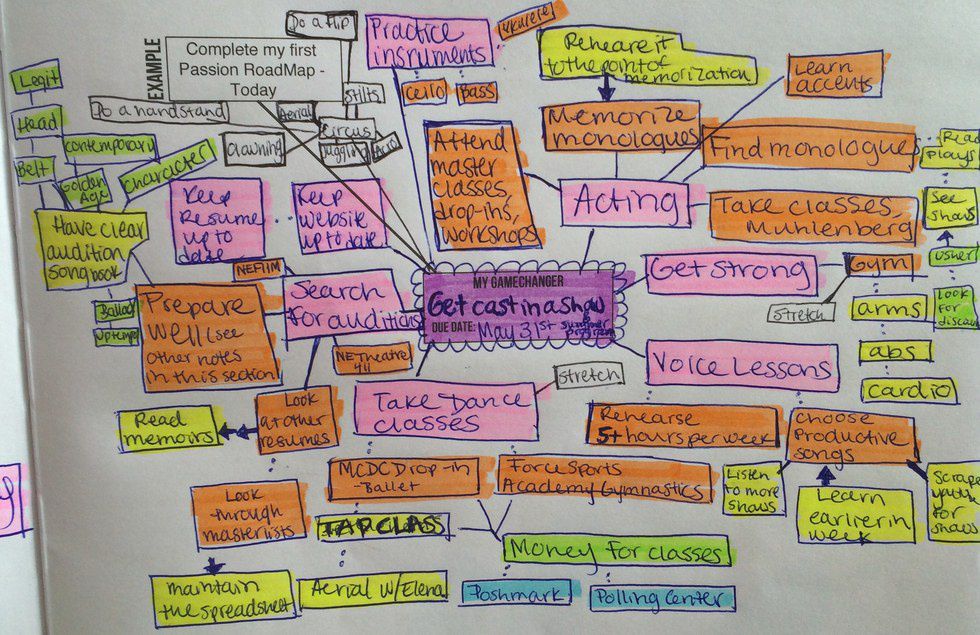 EXAMPLE
Complete my first
Passion RoadMap -
Today
Do a flip
Practice
insruments
ukurele
cello
Bass
Stilts
Aerial
Circus
Juggling
Acro
clowning
Do a handstand
Legit
Head
Belt
contemporary
Golden
Age
character
Have clear
audition
song book
Ballad
uptempo
Keep
Resume
up to
date
Keep
website
up to date
Reheare it
to the point of
memorization
Memorize
monologues
Learn
accents
Find monologues
Read
plays
See
shows
usher
Look
for
Attend
master
classes,
drop-ins,
workshops
Acting
Take classes,
Muhlenberg
MY GAMECHANGER
Get cast in a show
DUE DATE: May 31st
summer
program
Get strong
Gym
Stretch
arms
abs
cardio
NEFIIM
Search
for auditions
NETheatre
4U
Prepare
Well (see
other notes
in this section)
Look
at other
resumes
Read
memoirs
Look
through
masterlists
maintain
the spreadsheet
Take Dance
classes
stretch
MCDC Drop-in
-Ballet
TAP CLASS
Aerial w/Elena
Force Sports
Academy Gymnastics
Money for classes
Poshmark
Polling Center
Voice Lessons
Rehearse
5+ hours per week
choose
Productive
songs
Listen
to more
shows
Learn
earlier in
week
Scrape
youtube
for
shows